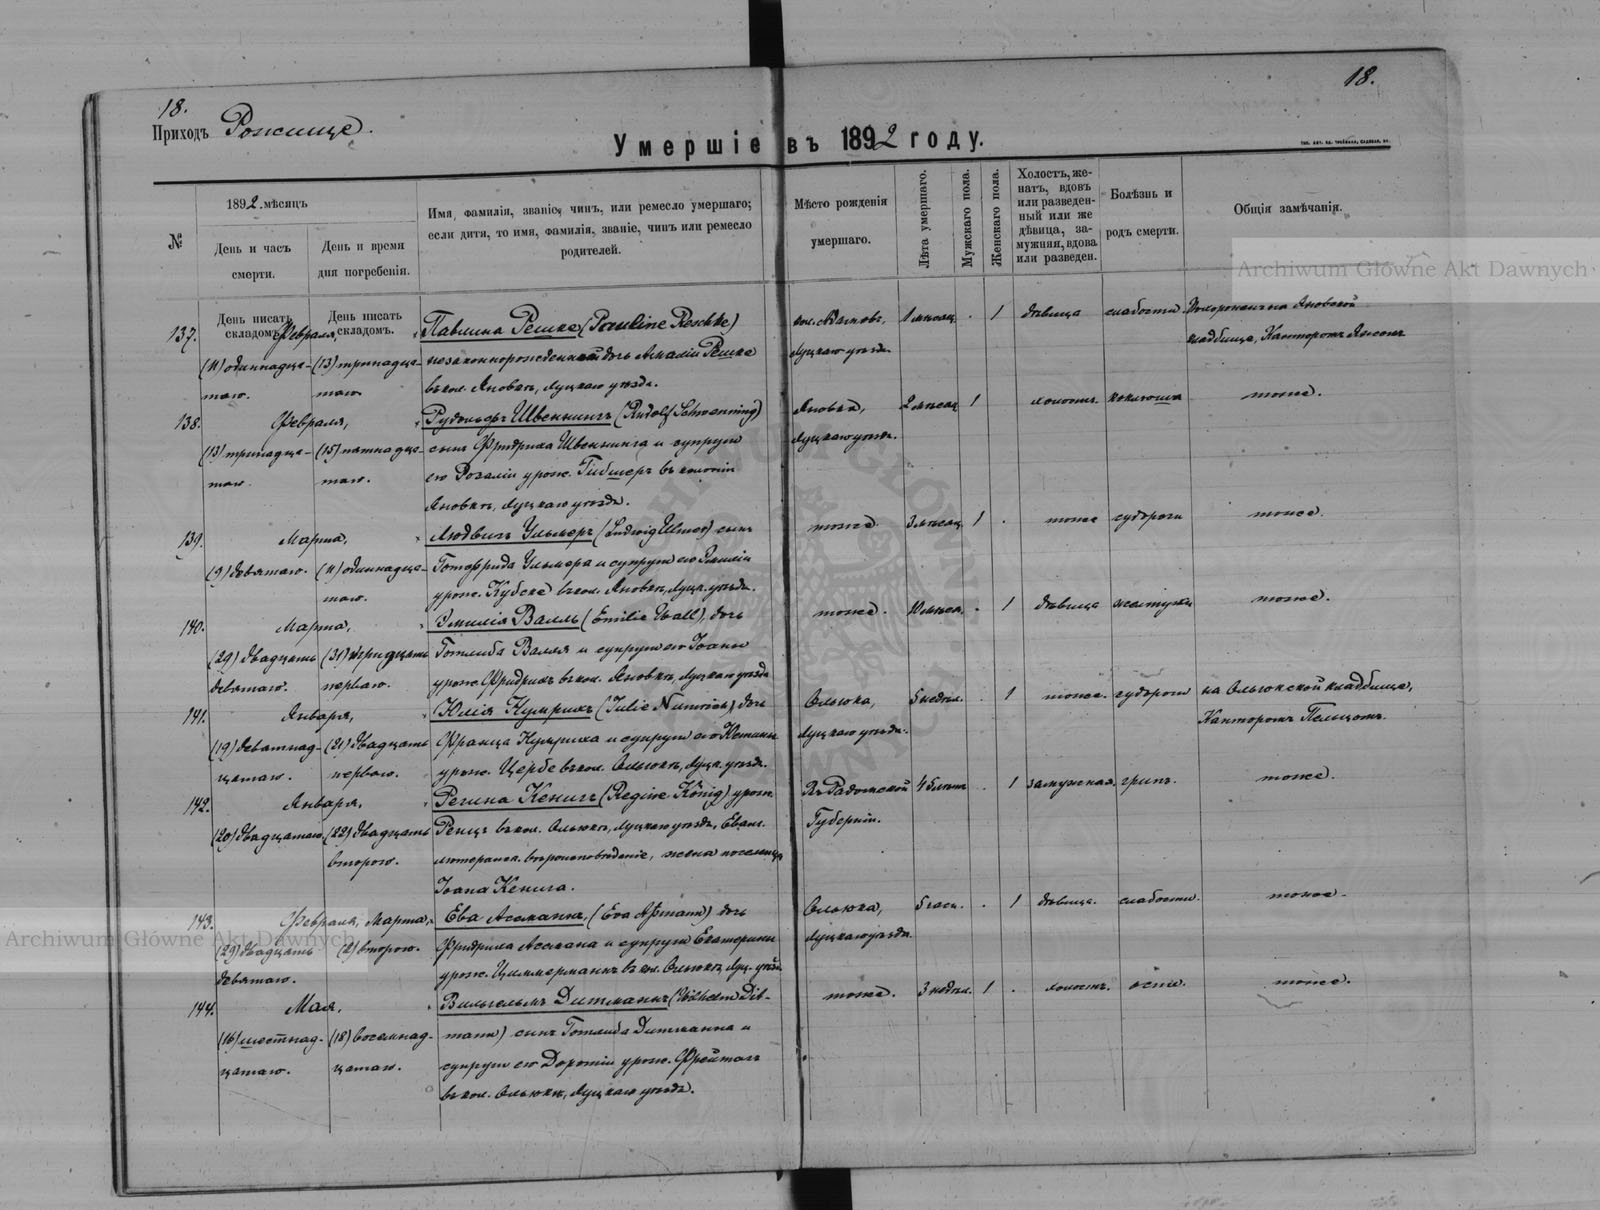 18.
18.
Приходъ Рожище.
Умершіе въ 1892 году.
№
1892 мѣсяцъ
День и часъ смерти.
День и время дня погребенія.
Имя, фамилія, званіе, чинъ, или ремесло умершаго; если дитя, то имя, фамилія, званіе, чинъ или ремесло родителей.
Мѣсто рожденія умершаго.
Лѣта умершаго.
Мужскаго пола.
Женскаго пола.
Холостъ, женатъ, вдовъ или разведенный или же дѣвица, замужняя, вдова или разведен.
Болѣзнь и родъ смерти.
Общія замѣчанія.
День писать складомъ.
День писать складомъ.
137. Февраля, Павлина Решке (Pauline Reschke) Луцкаго уѣзда. 1 мѣсяц. 1 дѣвица слабости Похоронена на Яновской кладбищѣ, Канторомъ
(11) одиннадца- (13) тринадца- незаконнорожденная дочь Амаліи Решке
таго. таго. въ кол. Яновкѣ, Луцкаго уѣзда.
138. Февраля, Рудольфъ Швеннингъ (Rudolf Schwenning) Яновка, 2 мѣсяц. 1 холостъ. коклюша тоже.
(13) тринадца- (15) пятнадца- сынъ Фридриха Швеннинга и супруги Луцкаго уѣзда.
таго. таго. его Розаліи урож. въ колоніи
Яновкѣ, Луцкаго уѣзда.
139. Марта, Людвигъ Ульмеръ (Ludwig Ulmer) сынъ тоже. 3 мѣсяц. 1 тоже судороги тоже.
(9) девятаго. (11) одиннадца- Готфрида Ульмера и супруги его Эмиліи
таго. урож. въ кол. Яновкѣ, Луцк. уѣзда.
140. Марта, Эмилія Валль (Emilie Wall), дочь тоже. 10 мѣсяц. 1 дѣвица тоже.
(29) двадцать (31) тридцать Готлиба Валля и супруги его Іоанны
девятаго. перваго. урож. Фридрихъ въ кол. Яновкѣ, Луцкаго уѣзда
141. Января, Юлія Нумрихъ (Julie Numrich), дочь Олыка, 5 недѣл. 1 тоже. судороги на кладбищѣ, Канторомъ
(19) девятнад- (21) двадцать Франца Нумриха и супруги его Луцкаго уѣзда.
цатаго. перваго. урож. Цербе въ кол. Луцк. уѣзда.
142. Января, Регина Кенигъ (Regine König) урож. въ Радомской Губерніи. 45 лѣтъ 1 замужняя. грипъ. тоже.
(20) двадцатаго (22) двадцать Ренцъ въ кол. Луцкаго уѣзда, Еванг.
второго. лютеранск. вѣроисповѣданіе, жена поселенца
Іоана Кенига.
143. Февраля, Марта, Ева Асманнъ, (Eva Aßmann) дочь Луцкаго уѣзда. 5 час. 1 дѣвица. слабости. тоже.
(29) двадцать (2) второго. Фридриха Асмана и супруги Екатерины
девятаго. урож. Циммерманнъ въ кол. Луц. уѣзд.
144. Мая, Вильгельмъ Дитманнъ (Wilhelm Dit- тоже. 3 недѣл. 1 холостъ. оспы. тоже.
(16) шестнад- (18) восемнад- mann) сынъ Готлиба Дитманна и
цатаго. цатаго. супруги его Доротіи урож. Фрейтагъ
въ кол. Луцкаго уѣзда.
Archiwum Główne Akt Dawnych
Archiwum Główne Akt Dawnych